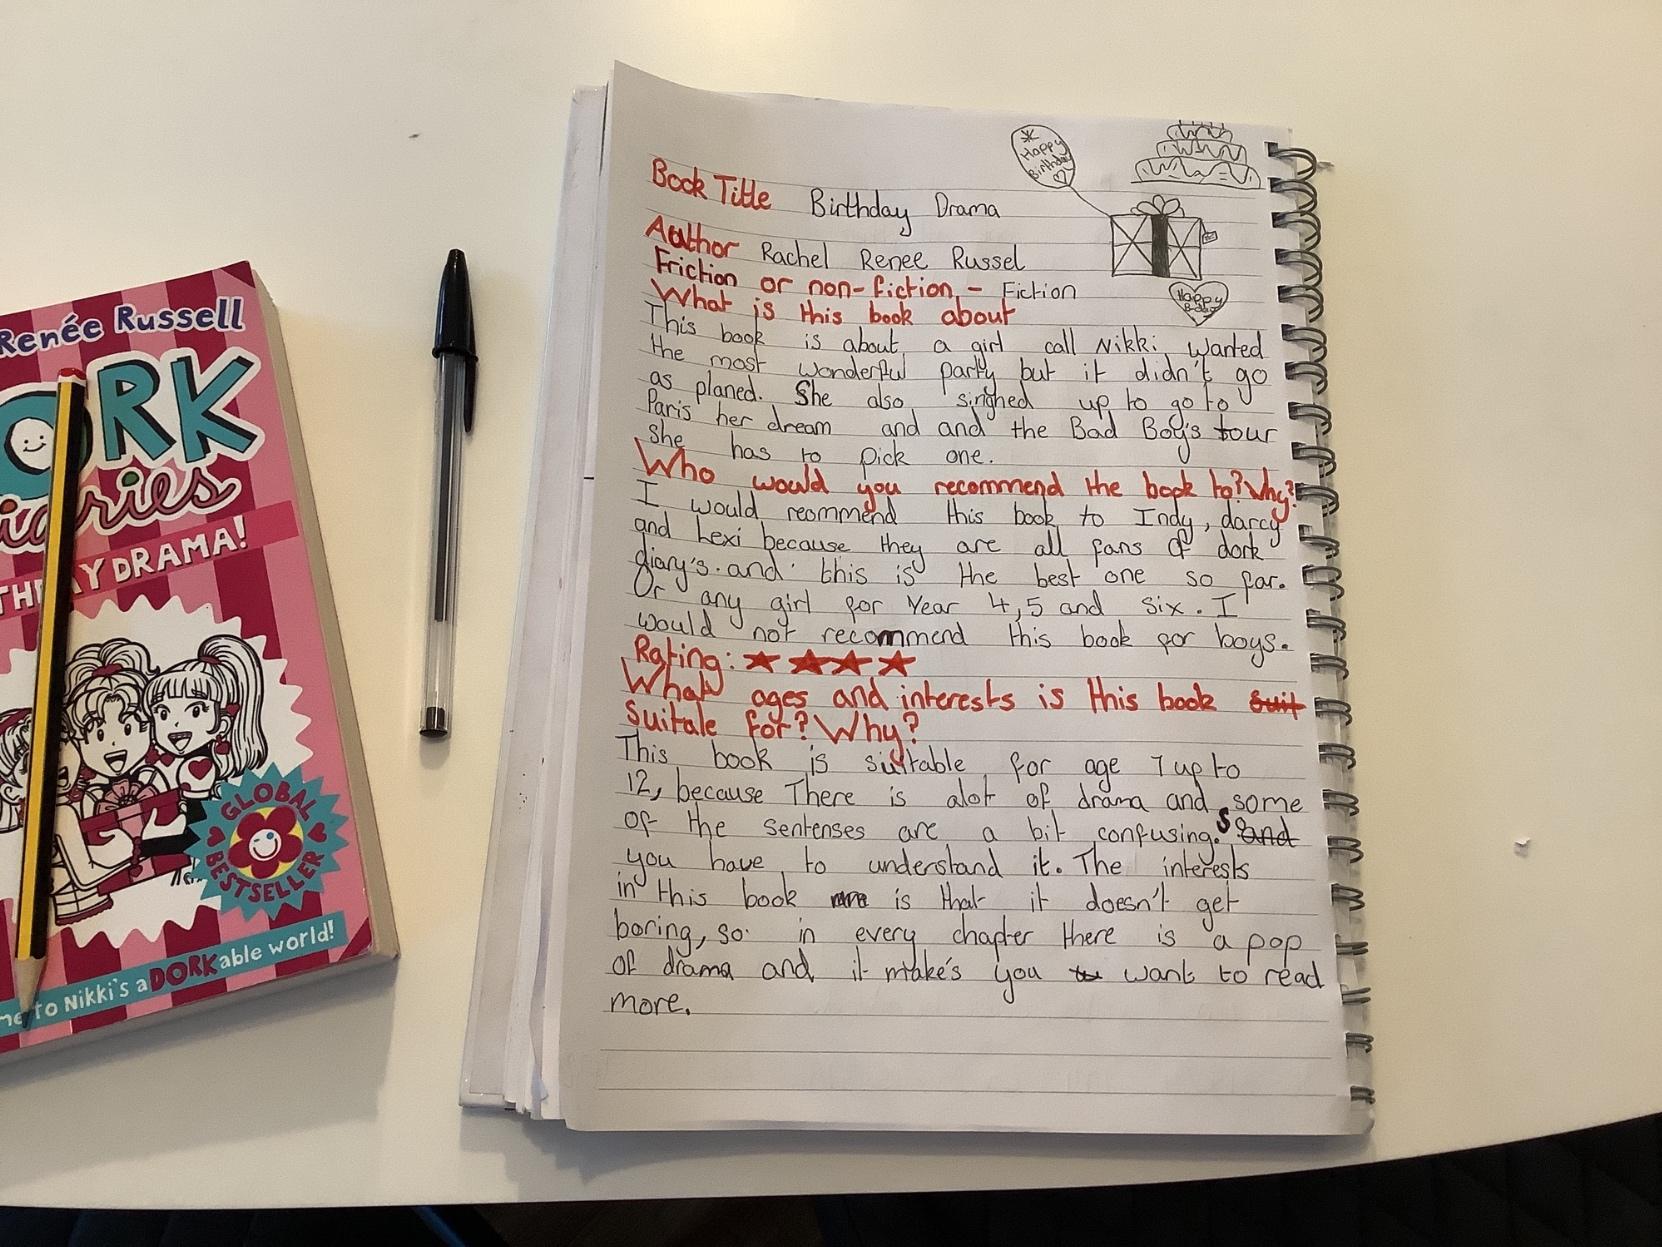 Renée Russell
DORK
diaries
THDAY DRAMA!
GLOBAL
BESTSELLER
me to Nikki's a DORKable world!
Happy
Birthday
Book Title Birthday Drama
Author Rachel Renee Russel
Friction or non-fiction - Fiction
Happy
What is this book about
This book is about a girl call Nikki wanted
the most wonderful party but it didn't go
as planed. She also singhed up to go to
Paris her dream and and the Bad Boy's tour
she has to pick one.
Who would you recommend the book to? Why?
I would reommend this book to Indy, darcy
and Lexi because they are all fans of dork
diary's. and this is the best one so far.
Or any girl for Year 4,5 and six. I
would not recommend this book for boys.
Rating: ★★★★
What ages and interests is this book suit
suitale for? Why?
This book is suitable for age 7 up to
12, because There is alot of drama and some
of the sentenses are a bit confusing. so and
you have to understand it. The interests
in this book is that it doesn't get
boring, so in every chapter there is a pop
of drama and it make's you to want to read
more.